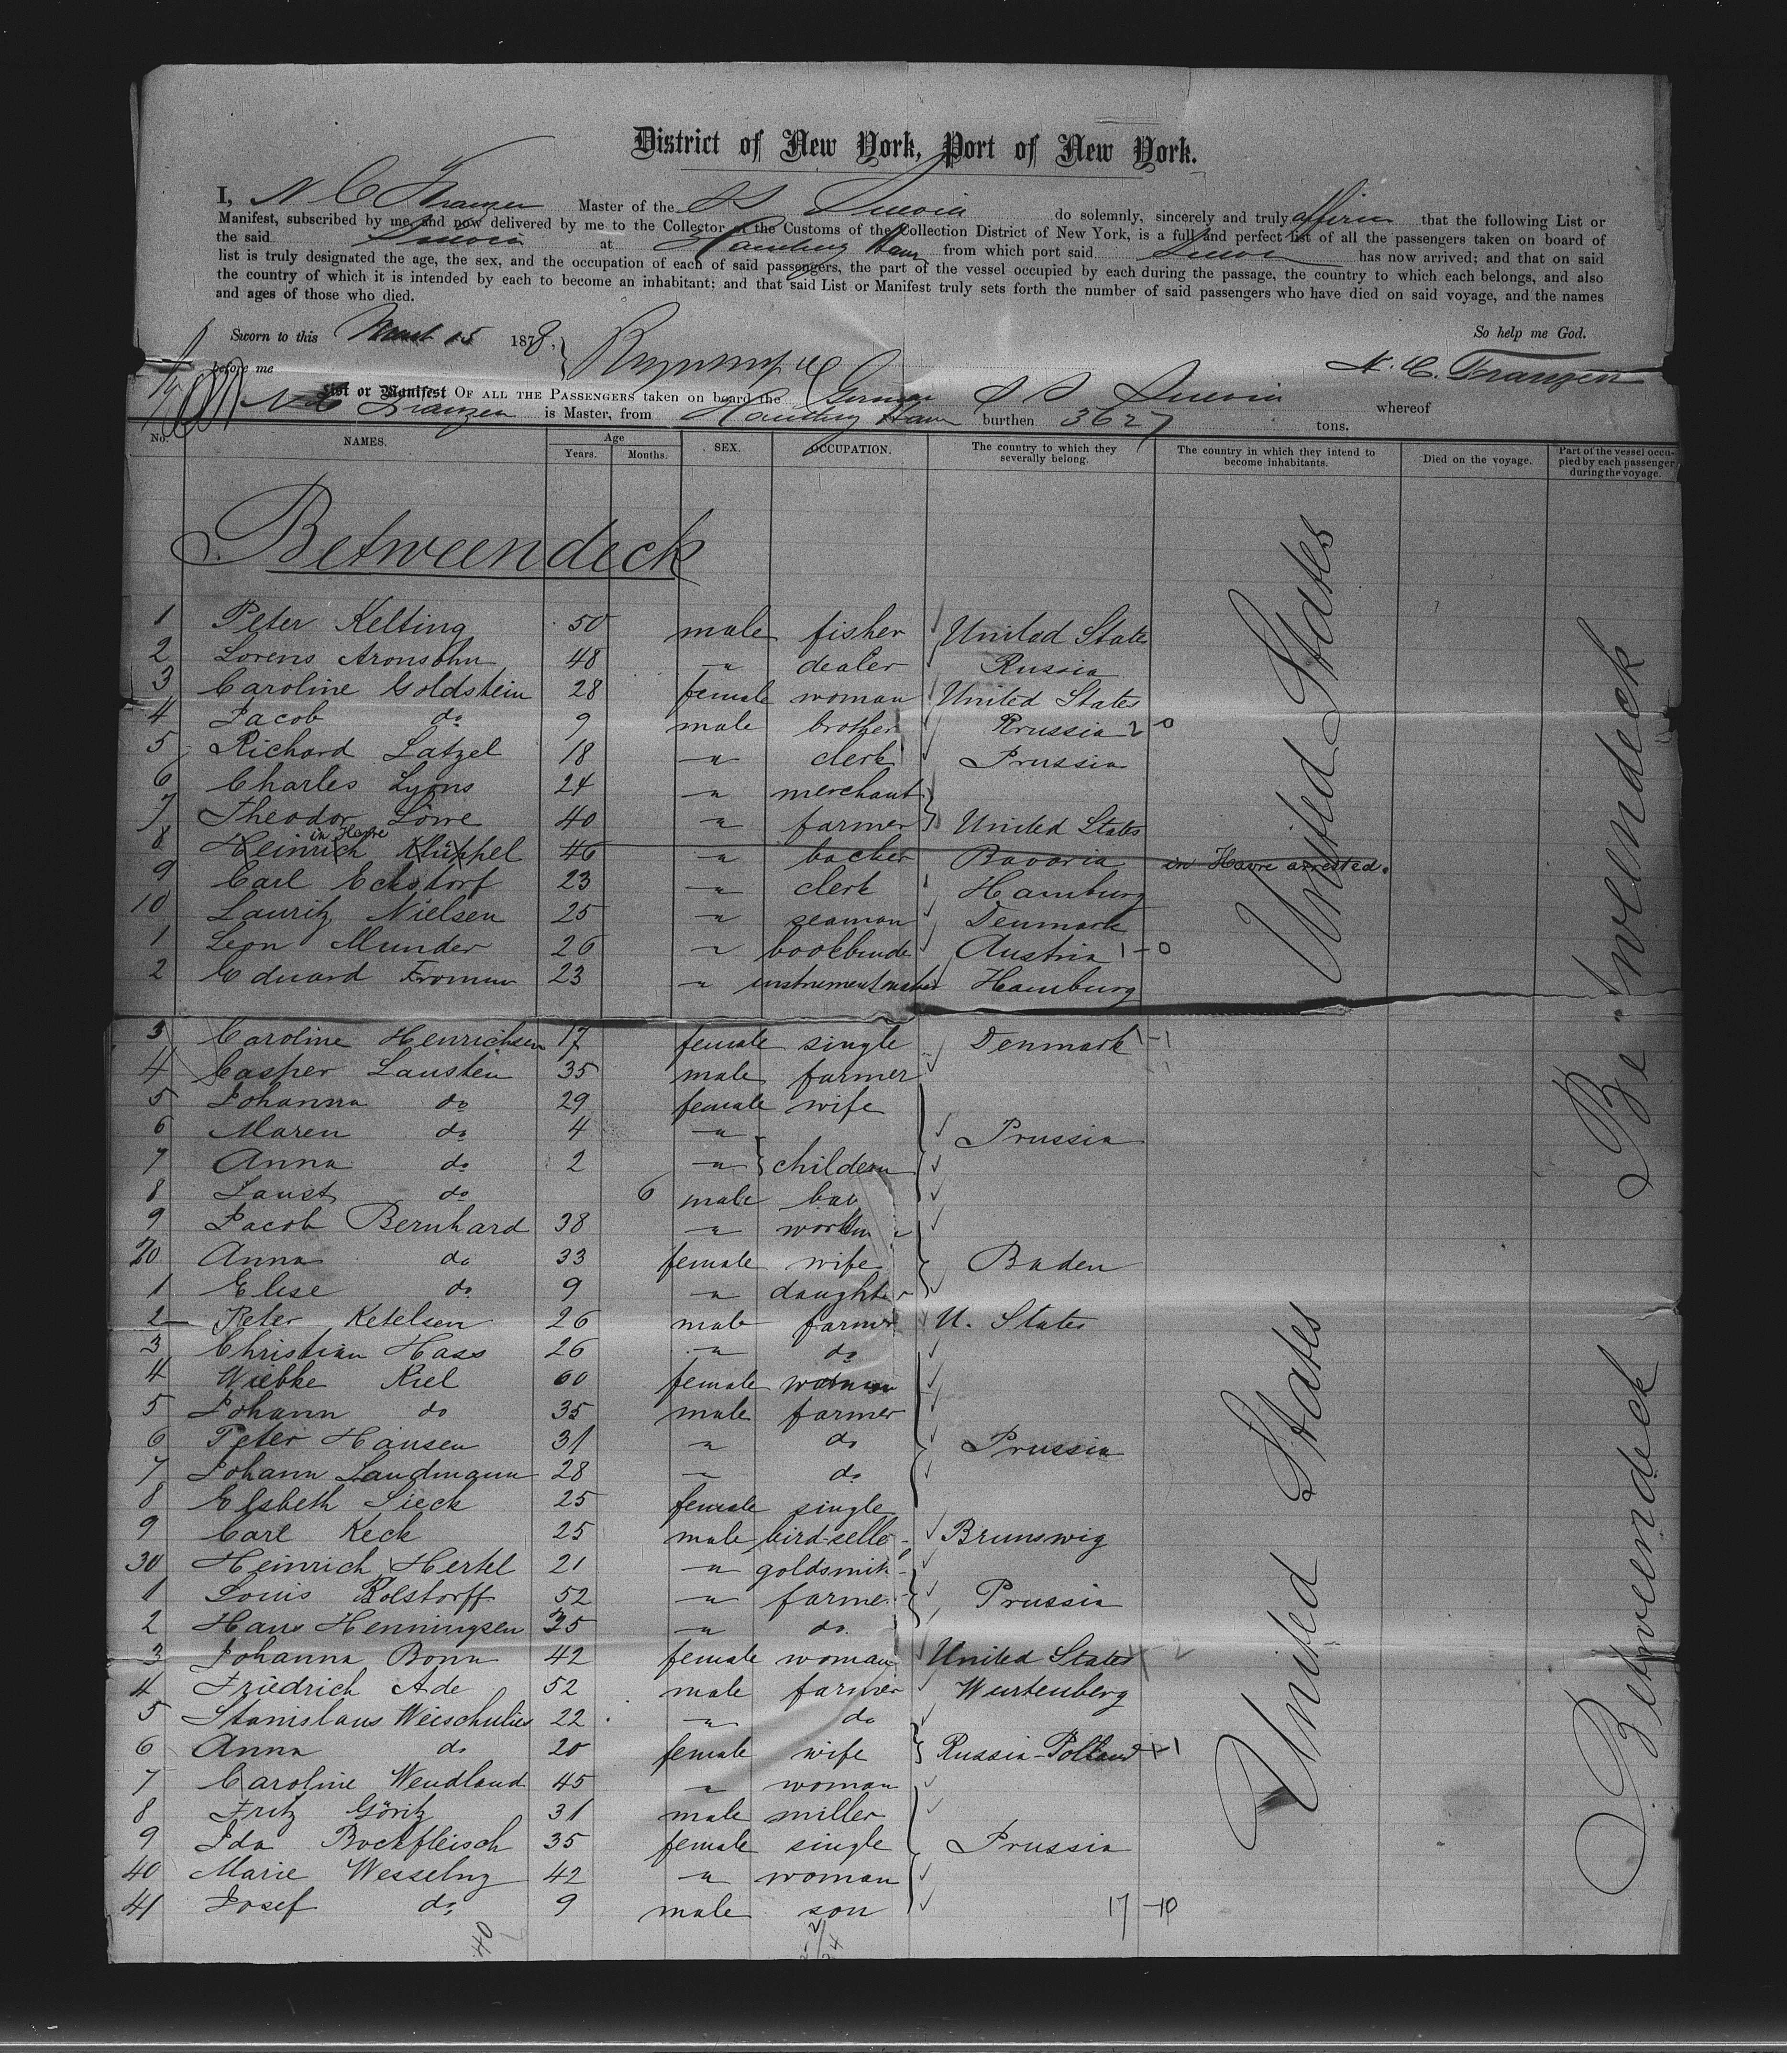 District of New York, Port of New York.
I, N C Franzen Master of the S S Suevia do solemnly, sincerely and truly affirm that the following List or
Manifest, subscribed by me and now delivered by me to the Collector of the Customs of the Collection District of New York, is a full and perfect list of all the passengers taken on board of
the said Suevia at Hamburg Havre from which port said Suevia has now arrived; and that on said
list is truly designated the age, the sex, and the occupation of each of said passengers, the part of the vessel occupied by each during the passage, the country to which each belongs, and also
the country of which it is intended by each to become an inhabitant; and that said List or Manifest truly sets forth the number of said passengers who have died on said voyage, and the names
and ages of those who died.
So help me God.
Sworn to this 15 1878,
before me
N. C. Franzen
List or Manifest OF ALL THE PASSENGERS taken on board the German S S Suevia whereof
N C Franzen is Master, from Hamburg Havre burthen 3627 tons.
No. NAMES. Age Years. Months. SEX. OCCUPATION. The country to which they severally belong. The country in which they intend to become inhabitants. Died on the voyage. Part of the vessel occupied by each passenger during the voyage.
Betweendeck
1 Peter Kelting 50 male fisher United State
2 Lorens Aronsohn 48 " dealer Russia
3 Caroline Goldstein 28 female woman United States
4 Jacob do 9 male brother Prussia 2 0
5 Richard Latzel 18 " clerk Prussia
6 Charles Lyons 24 " merchant
7 Theodor Löwe 40 " farmer United States
in Havre
8 Heinrich Klüppel 46 " backer Bavaria in Havre arrested.
9 Carl Eckstorf 23 " clerk Hamburg
10 Lauritz Nielsen 25 " seaman Denmark
1 Leon Munder 26 " bookbinde Austria 1-0
2 Eduard Fromm 23 " instrumentmaker Hamburg
3 Caroline Henrichsen 17 female single Denmark 1-1
4 Casper Lausten 35 male farmer
5 Johanna do 29 female wife
6 Maren do 4 " Prussia
7 Anna do 2 " childern
8 Laust do 6 male bab
9 Jacob Bernhard 38 "
20 Anna do 33 female wife Baden
1 Elise do 9 " daughter
2 Peter Ketelsen 26 male farmer U. States
3 Christian Hass 26 " do
4 Wiebke Kiel 60 female woman
5 Johann do 35 male farmer
6 Peter Hansen 31 " do Prussia
7 Johann Landmann 28 " do
8 Elsbeth Sieck 25 female single
9 Carl Keck 25 male bird-selle Brunswig
30 Heinrich Hertel 21 " goldsmith
1 Louis Bolstorff 52 " farmer Prussia
2 Hans Henningsen 25 " do.
3 Johanna Bonn 42 female woman United States 1-2
4 Friedrich Ade 52 male farmer Wurtenberg
5 Stanislaus Weischulies 22 " do
6 Anna do 20 female wife Russia-Polland 1-1
7 Caroline Wendland 45 " woman
8 Fritz Göritz 31 male miller
9 Ida Bockfleisch 35 female single Prussia
40 Marie Wesseling 42 " woman
41 Josef do 9 male son 17-10
40
United States
United States
Betweendeck
Betweendeck